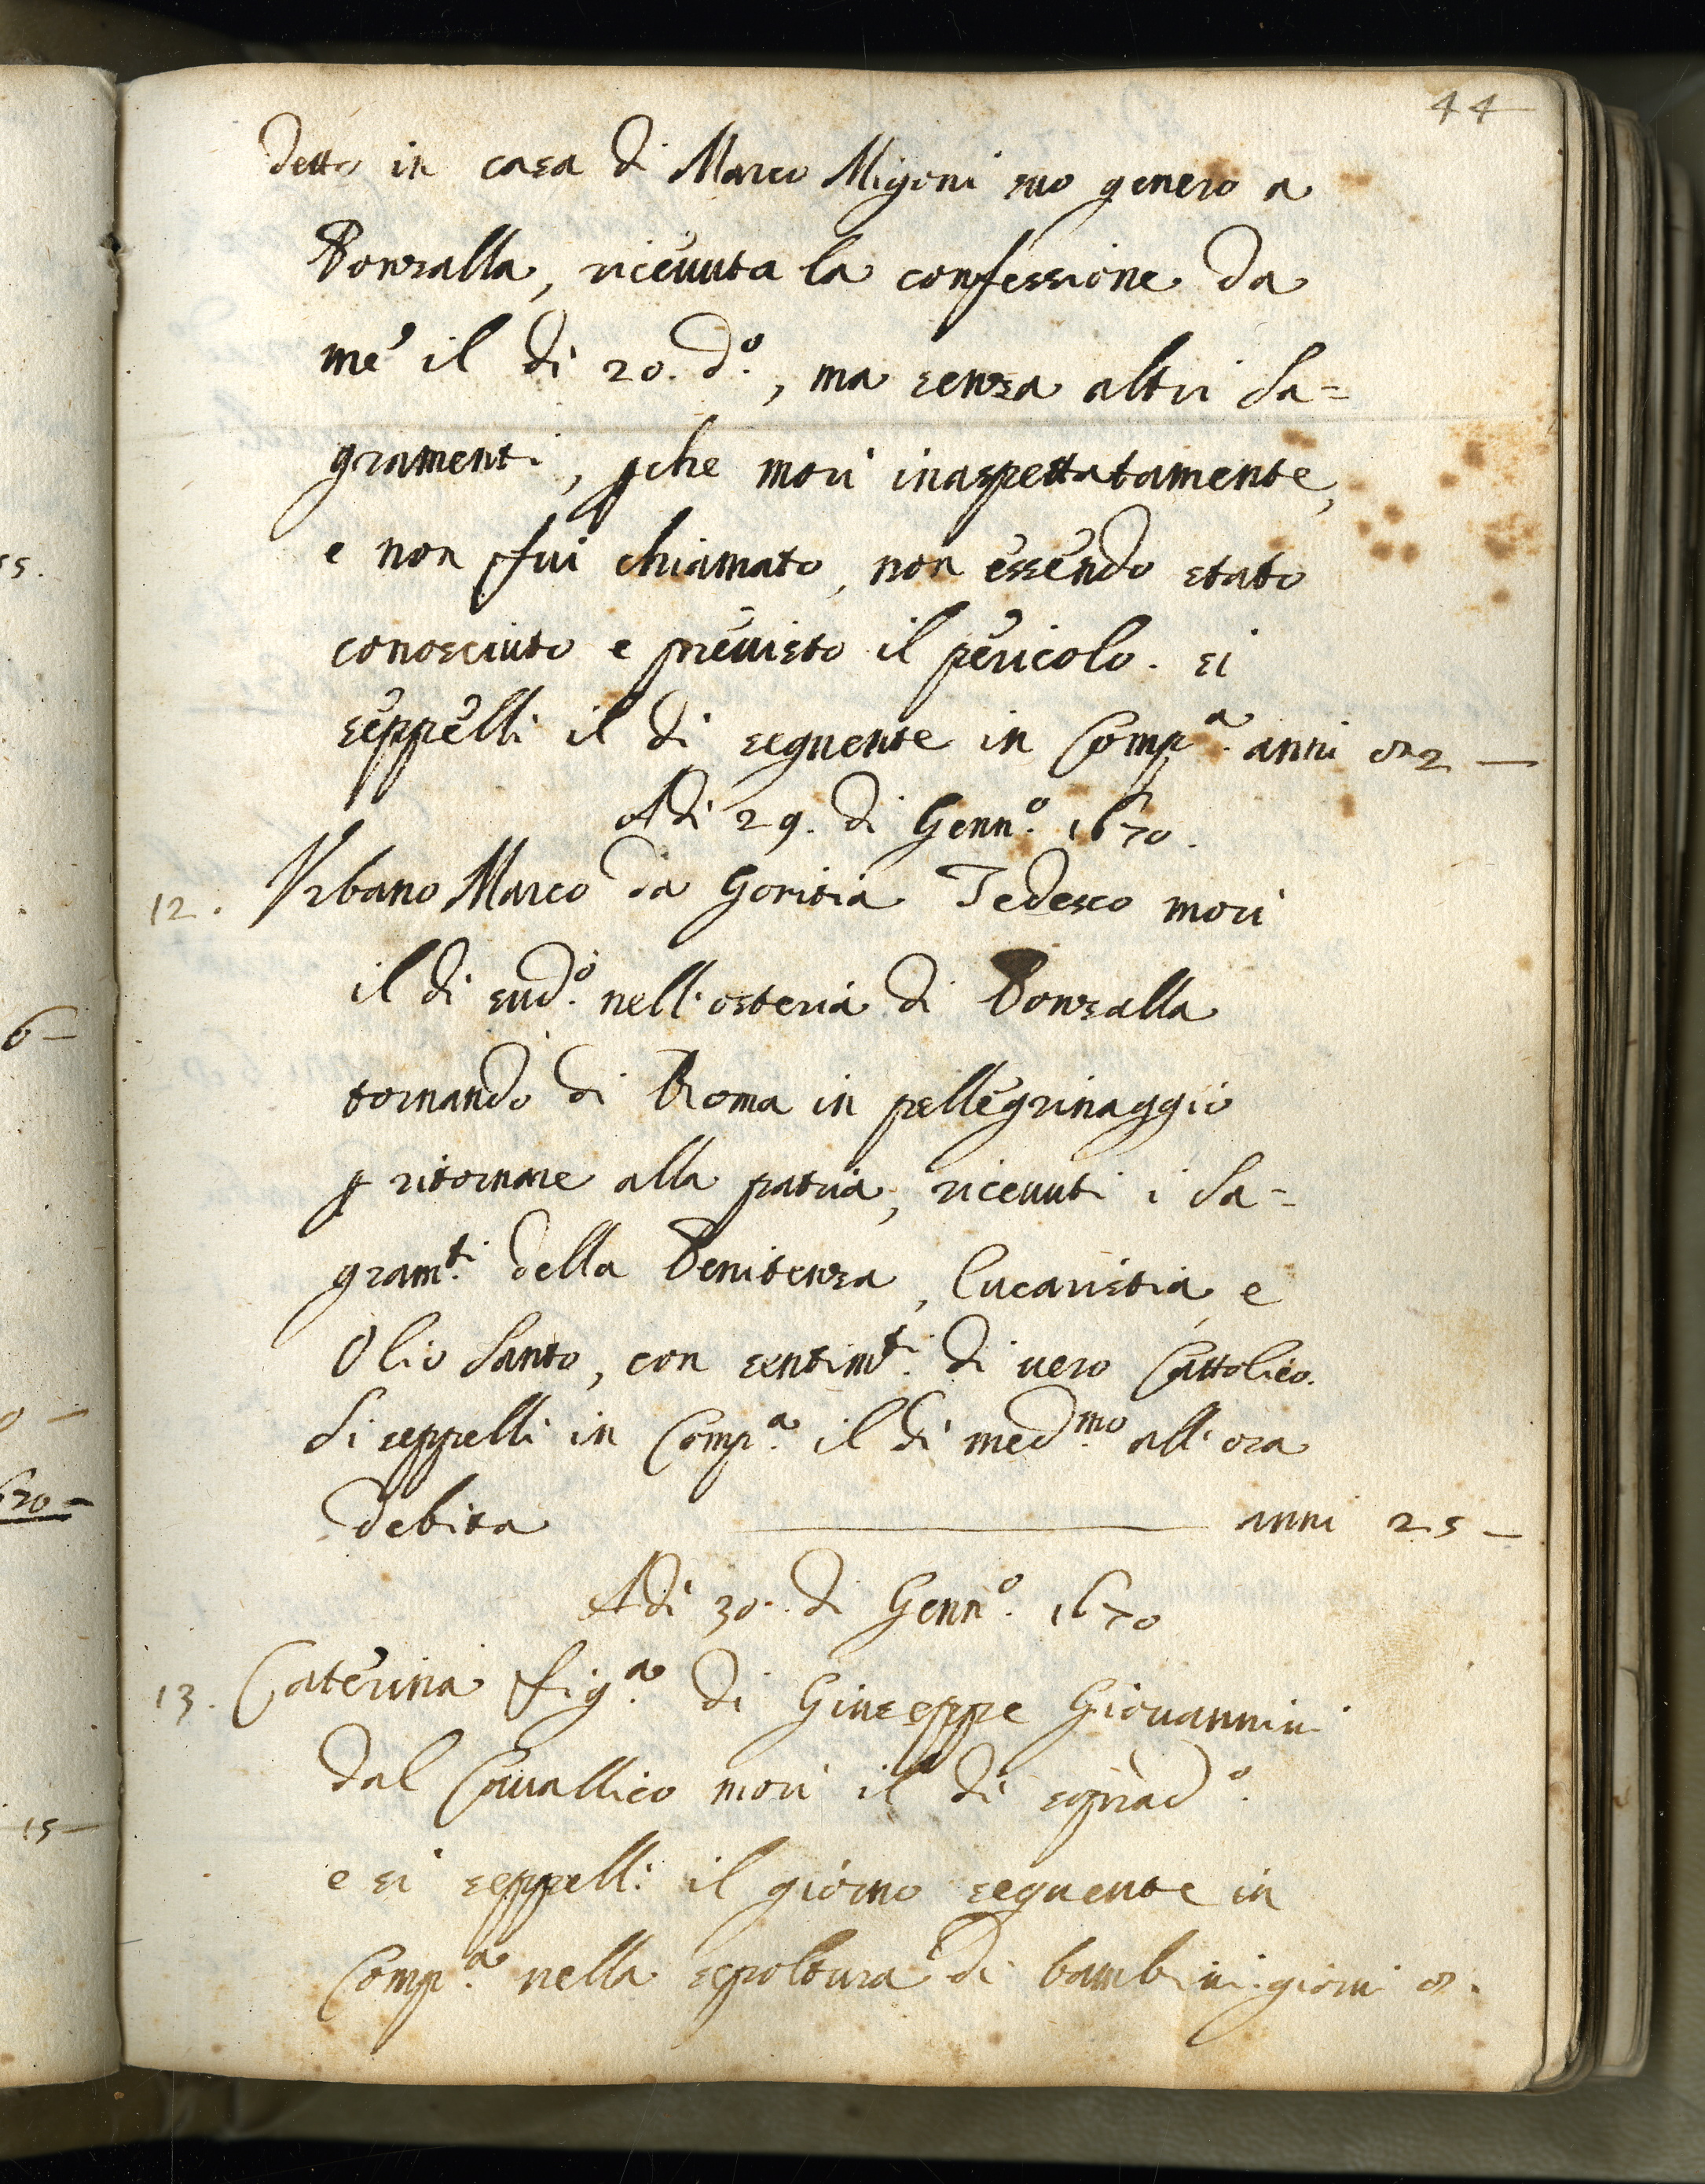 44
detto in casa di Marco Migoni suo genero a
Ponzalla, ricevuta la confessione da
me il di 20. d.º, ma senza altri Sa=
gramenti, pche mori inaspettatamente,
e non fui chiamato, non essendo stato
conosciuto e previsto il pericolo. si
seppelli il di seguente in Comp.ª anni 82 —
Adi 29. di Genn.º 1670.
12. Urbano Marco da Goritia Tedesco mori
il di sud.º nell'osteria di Ponzalla
tornando di Roma in pellegrinaggio
p ritornare alla patria, ricevuti i Sa=
gram.ti della Penitenza, Eucaristia, e
Olio Santo, con sentim.ti di vero Cattolico.
Si seppelli in Comp.ª il di med.mo all'ora
debita — anni 25 —
Adi 30. di Genn.º 1670
13. Caterina fig.ª di Giuseppe Giovannini
dal Cavallico mori il di soprad.º
e si seppelli il giorno seguente in
Comp.ª nella sepoltura di bambini. giorni 8.
55.
6 —
670 —
15 —